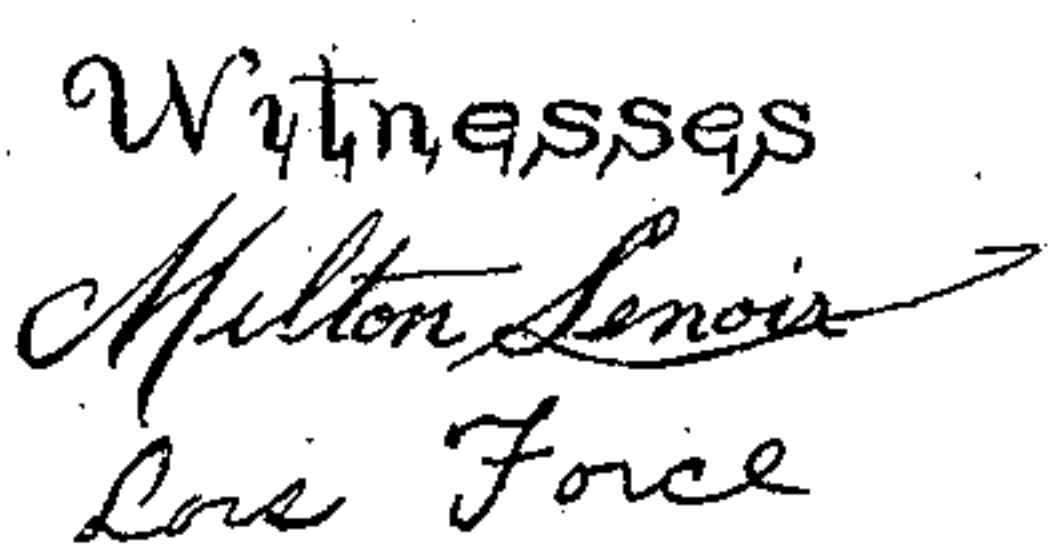 Witnesses
Milton Lenoir
Lois Force